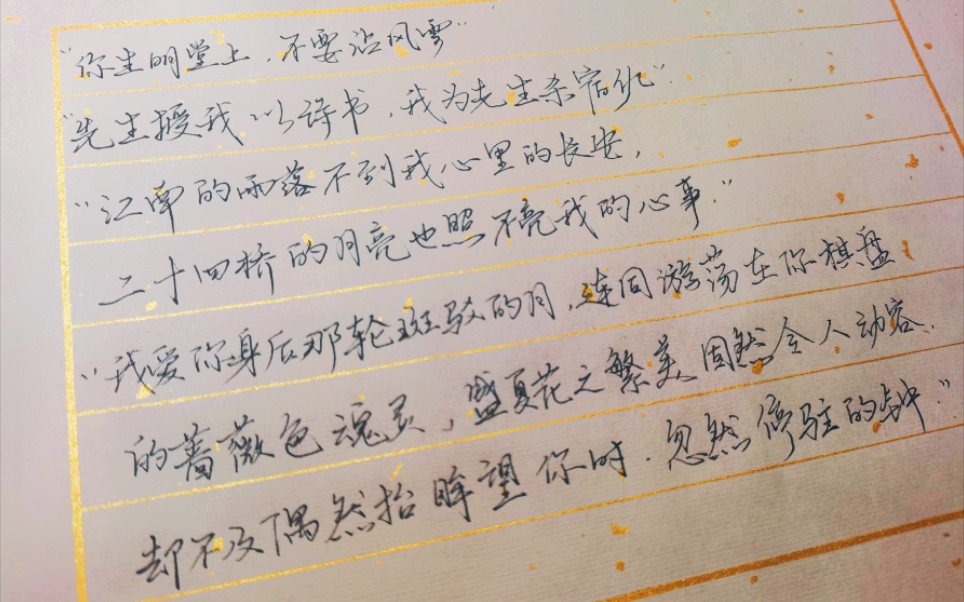 "你生明堂上，不要沾风雪"
"先生授我以诗书，我为先生杀宿仇"
"江南的雨落不到我心里的长安，
二十四桥的月亮也照不亮我的心事."
"我爱你身后那轮斑驳的月，连同游荡在你棋盘
的蔷薇色魂灵，盛夏花之繁美固然令人动容.
却不及偶然抬眸望你时.忽然停驻的钟"